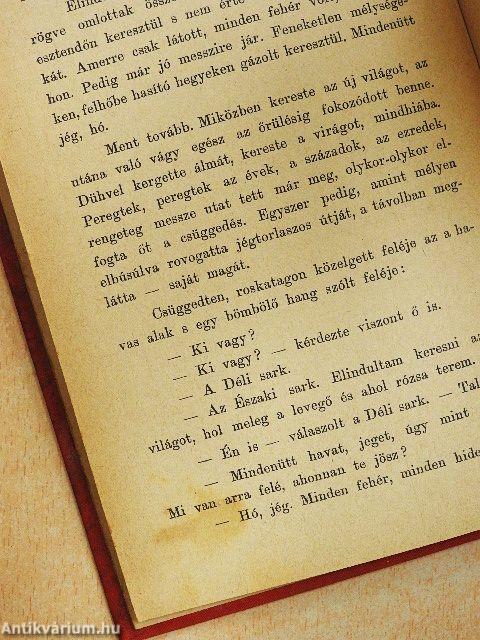 Elindu
rögve omlottak össz
esztendőn keresztül s nem érte
kát. Amerre csak látott, minden fehér von
hon. Pedig már jó messzire jár. Feneketlen mélysége-
ken, felhőbe hasító hegyeken gázolt keresztül. Mindenütt
jég, hó.
Ment tovább. Miközben kereste az új világot, az
utána való vágy egész az őrülésig fokozódott benne.
Dühvel kergette álmát, kereste a virágot, mindhiába.
Peregtek, peregtek az évek, a századok, az ezredek,
rengeteg messze utat tett már meg, olykor-olykor el-
fogta őt a csüggedés. Egyszer pedig, amint mélyen
elbúsúlva rovogatta jégtorlaszos útját, a távolban meg-
látta — saját magát.
Csüggedten, roskatagon közelgett feléje az a ba-
vas alak s egy bömbölő hang szólt feléje:
— Ki vagy?
— Ki vagy? — kérdezte viszont ő is.
— A Déli sark.
— Az Északi sark. Elindultam keresni az
világot, hol meleg a levegő és ahol rózsa terem.
— Én is — válaszolt a Déli sark. — Tal
— Mindenütt havat, jeget, úgy mint
Mi van arra felé, ahonnan te jösz?
— Hó, jég. Minden fehér, minden hide
Antikvárium.hu